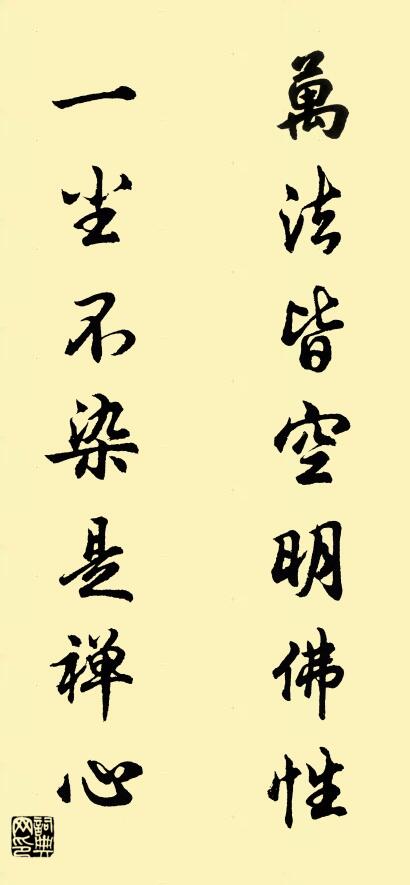 萬法皆空明佛性
一尘不染是禅心
詞典网印